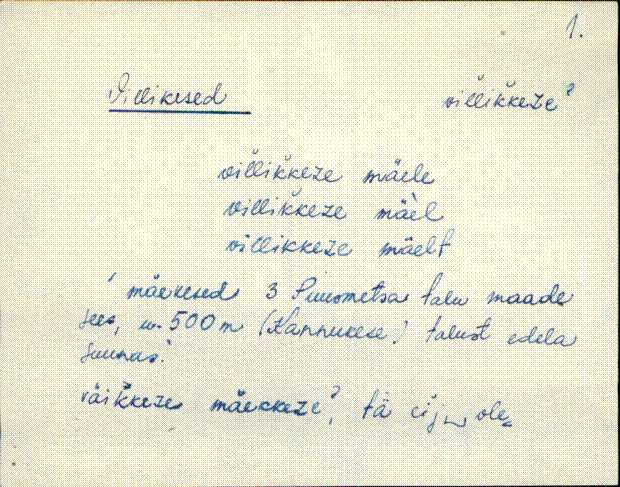 1.
Villikesed villikkeze?
villikkeze mäele
villikkeze mäèl
villikkeze mäelt
' mäekesed 3 Suuometsa talu maade
sees, u. 500 m (Kannukese) talust edela
suunas.'
väikkeze mäekkeze?, tä ei ole